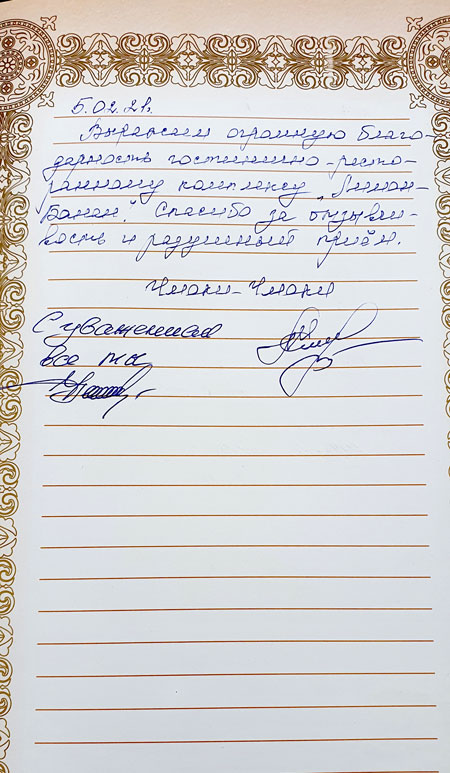 5.02.21г.
Выражаем огромную благо-
дарность гостинично-ресто-
ранному комплексу „Лиман-
Банан". Спасибо за отзывчи-
вость и радушный приём.
Чмоки-Чмоки
С уважением
все мы